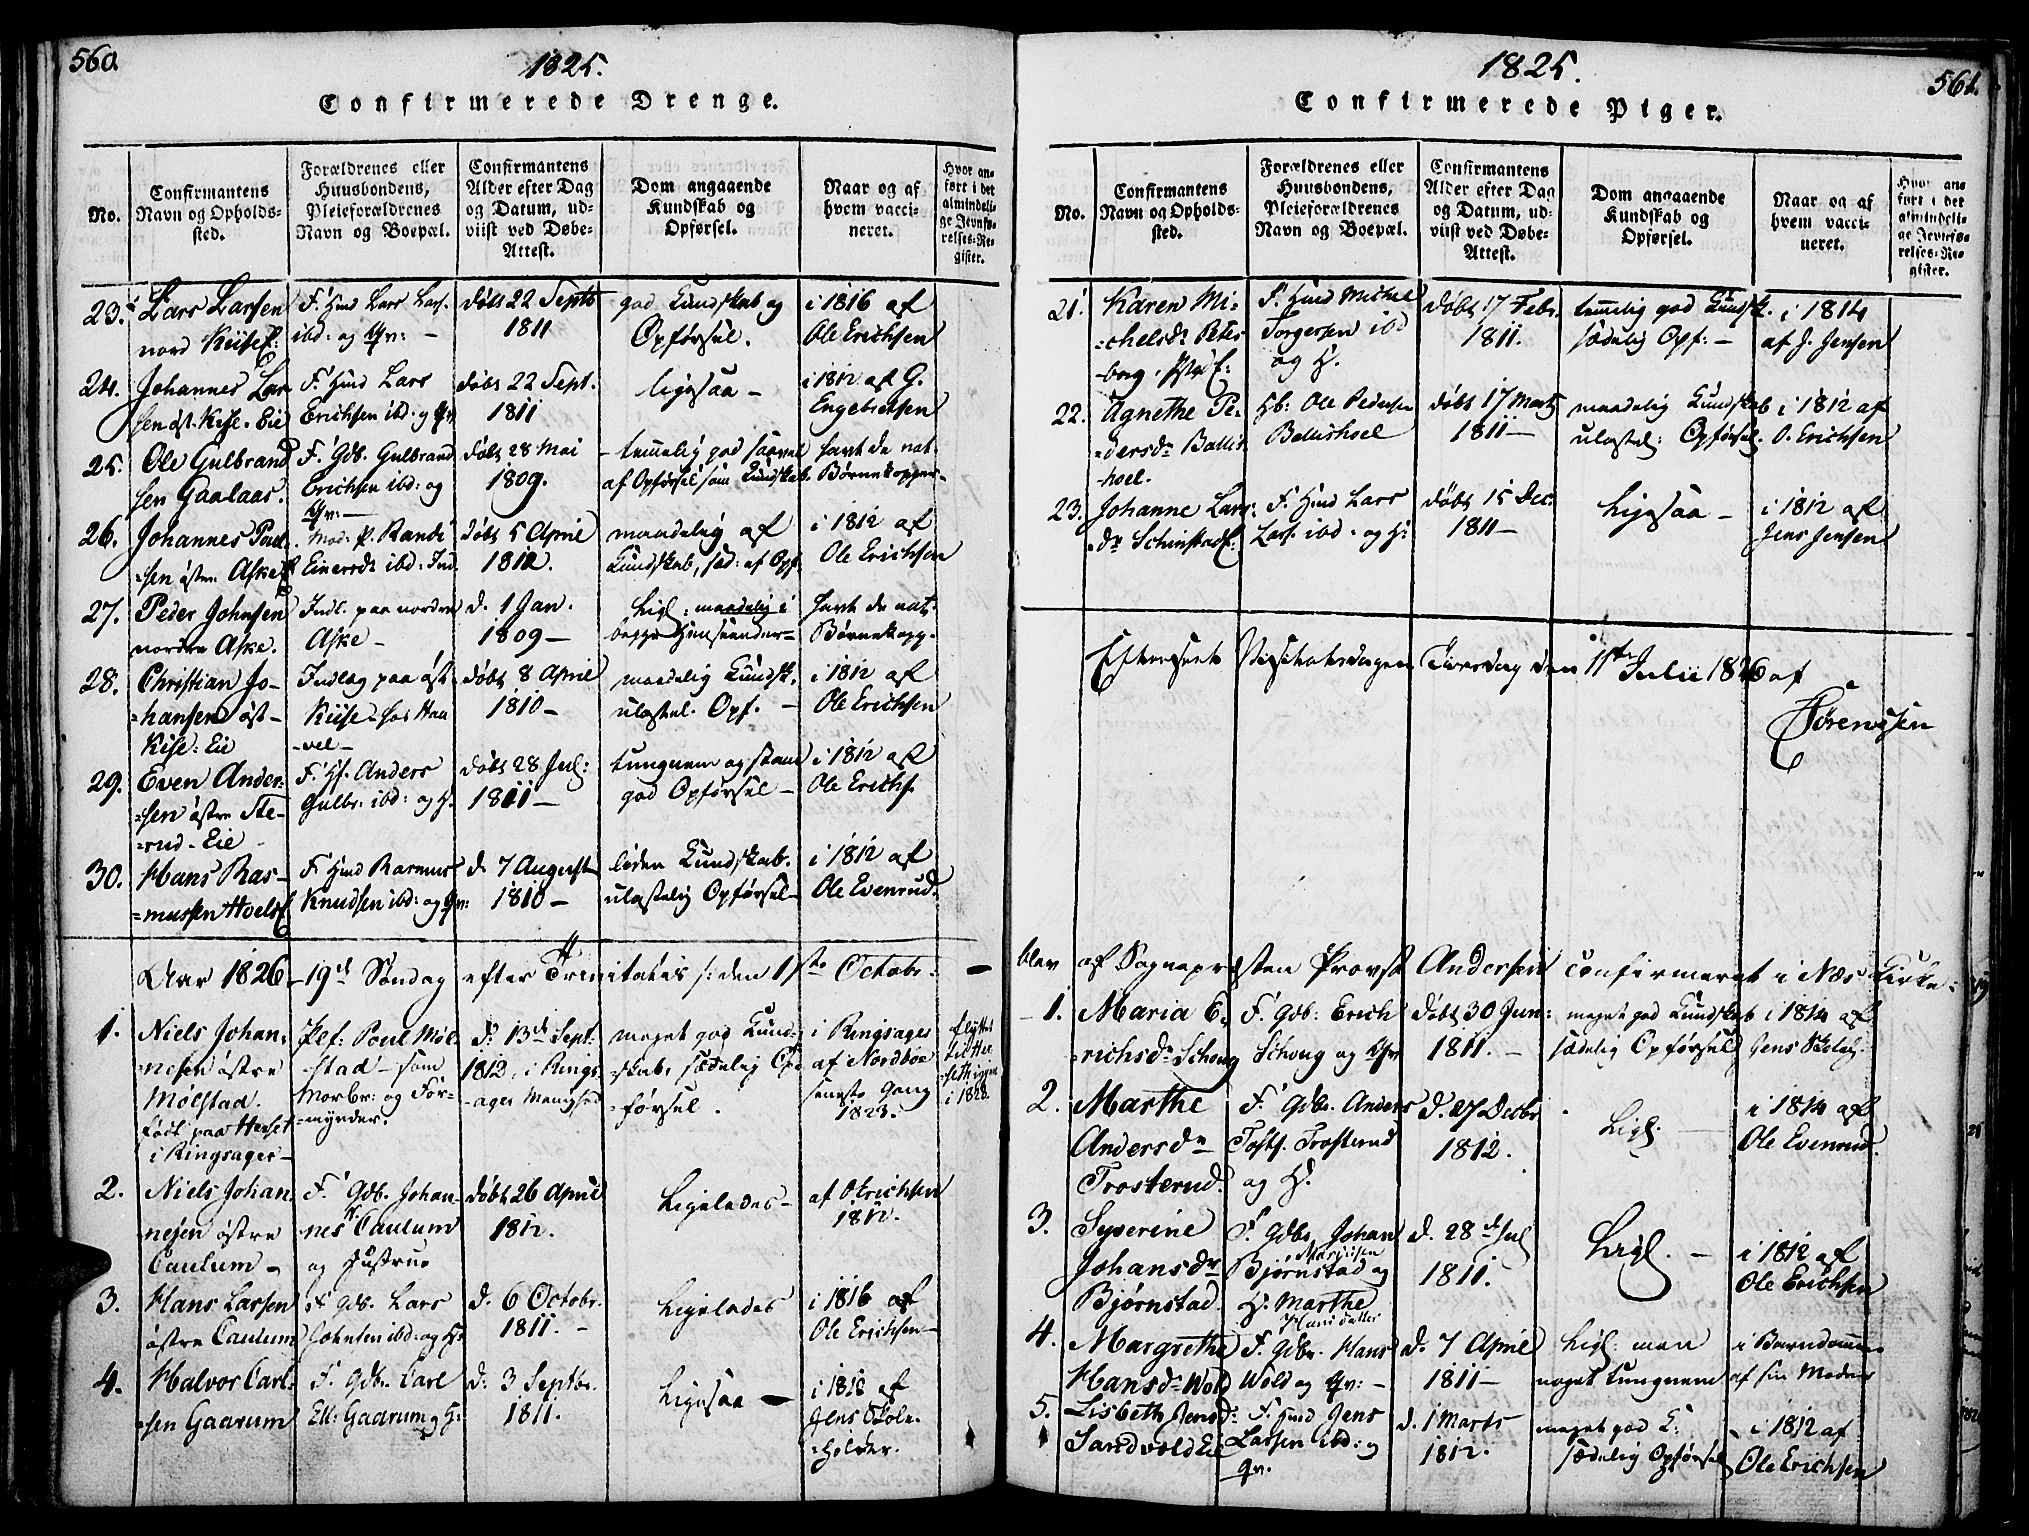 560.
1825.
Confirmerede Drenge.
No.
Confirmantens
Navn og Opholds-
sted.
Forældrenes eller
Huusbondens,
Pleieforældrenes
Navn og Boepæl.
Confirmantens
Alder efter Dag
og Datum, ud-
viist ved Døbe-
Attest.
Dom angaaende
Kundskab og
Opførsel.
Naar og af
hvem vacci-
neret.
Hvor an-
ført i det
almindeli-
ge Jevnfø-
relses-Re-
gister.
23.
Lars Larsen
nord Kiise
F. Hmd Lars Lars.
ibd: og Qv: -
døbt 22 Septb
1811
god Kundskab og
Opførsel.
i 1816 af
Ole Erichsen
24.
Johannes Lar
sen øst. Kise. Eie
F. Hmd Lars
Erichsen ibd. og Qv
døbt 22 Sept.
1811
ligesaa -
i 1812 af G.
Engebretsen
25.
Ole Gulbrand
sen Gaalaas.
F. Gdb. Gulbrand
Erichsen ibd: og
Qv: -
døbt 28 Mai
1809.
temmelig god saavel
af Opførsel som Kundskab.
havt de nat.
Børnekopper-
26.
Johannes Poul-
=sen østre Aske
Mod: P. Randi
Einersd: ibd: Ind.
døbt 5 April
1812.
maadelig af
Kundskab, sæd: af Opf.
i 1812 af
Ole Erichsen
27.
Peder Johnsen
nordre Aske.
Indl. paa nordre
Aske -
d. 1 Jan.
1809 -
Ligl: maadelig i
begge Henseender -
havt de nat.
Børnekopp.
28.
Christian Jo-
=hansen øst-
Kise. Eie
Indlag paa øst-
Kiise - hos Haa
-vel-
døbt 8 April
1810 -
maadelig Kundsk.
ulastel. Opf. -
i 1812 af
Ole Erichsen
29.
Even Ander-
=sen østre Ste-
=rud - Eie
F. Hf. Anders
Gulbr: ibd: og H.
døbt 28 Jul:
1811 -
tungnem og
god Opførsel -
i 1812 af
Ole Erichs.
30.
Hans Ras-
=mussen Hoels
F. Hmd Rasmus
Knudsen ibd: og Qv:
d. 7 August
1810 -
liden Kundskab.
ulastelig Opførsel -
i 1812 af
Ole Evenrud.
Aar 1826 - 19de Søndag efter Trinitatis /: den 1ste Octobr: -
1.
Niels Johan-
nesen østre
Mølstad.
født paa Herset
i Ringsager -
Plef: Poul Møl-
-stad - som
Morbr: og For-
=mynder.
d. 13de Sept:
1812, i Rings
-ager
meget god Kund-
-skab, sædelig Op-
=førsel.
i Ringsager
af Nordboe
seneste Gang
1823.
flyttet
til Her
seth igjen
i 1828.
2.
Niels Johan
nesen østre
Caulum -
F. Gdb. Johan-
nes Caulum
og Hustrue
døbt 26 April
1812.
Ligeledes -
af O Erichsen
1812.
3.
Hans Larsen
østre Caulum
F. Gdb. Lars
Johnsen ibd: og H:
d. 6 Octobr.
1811. -
Ligeledes
i 1816 af
Ole Erichsen -
4.
Halvor Carl-
=sen Gaarum
F. Gdb. Carl
Ell: Gaarum og H:
d: 3 Septbr.
1811.
Ligesaa -
i 1818 af
Jens Skole-
=holder.
1825.
561.
Confirmerede Piger.
No.
Confirmantens
Navn og Opholds-
sted.
Forældrenes eller
Huusbondens,
Pleieforældrenes
Navn og Boepæl.
Confirmantens
Alder efter Dag
og Datum, ud-
viist ved Døbe-
Attest.
Dom angaaende
Kundskab og
Opførsel.
Naar og af
hvem vacci-
neret.
Hvor an-
ført i det
almindeli-
ge Jevnfø-
relses-Re-
gister.
21.
Karen Mi-
=chelsdr Peters
borg.
F. Hmd Michel
Torgersen ibd
og H.
døbt 17 Febr.
1811.
temmelig god Kundsk.
sædelig Opf: -
i 1814
af J. Jensen
22.
Agnethe Pe-
=dersdr Ballis-
hoel.
Hb: Ole Pedersen
Ballishoel
døbt 17 Marts
1811 -
maadelig Kundskab
ulastel: Opførsel.
i 1812 af
O. Erichsen
23.
Johanne Lars-
dr Schinstad
F. Hmd Lars
Lars. ibd. og H:
døbt 15 Dec.
1811 -
Ligesaa -
i 1812 af
Jens Jensen
Efterseet Visitatsdagen Tirsdag den 11te Julii 1826 af
Sørenssen
blev af Sognepræsten Provst Andersen confirmeret i Næs Kirke:
1.
Maria E-
=richsdr Schoug
F. Gdb: Erich
Schoug og Qv
døbt 30 Jun:
1811. -
meget god Kundskab
sædelig Opførsel
i 1814 af
Jens Skoleh.
2.
Marthe
Andersdr
Trosterud.
F. Gdb. Anders
Tosts. Trosterud
og H.
d. 27 Decbr
1812.
Ligl.
i 1814 af
Ole Evenrud.
3.
Syverine
Johansdr
Bjørnstad.
F. Gdb. Johan
Bjørnstad og
H. Marthe
Hansdatter
d. 28de Jul
1811.
Ligl. -
i 1812 af
Ole Erichsen
4.
Margrethe
Hansdr Wold
F. Gdbr. Hans
Wold og Qv: -
d. 7 April
1811 -
Ligl: men
noget tungnem
i Barndommen
af sin Moder
5.
Lisbeth Jensd:
Sandvold Eie
F. Hmd Jens
Larsen ibd: og
Qv.
d. 1 Marts
1812.
meget god K:
sædelig Opførsel
i 1812 af
Ole Erichsen